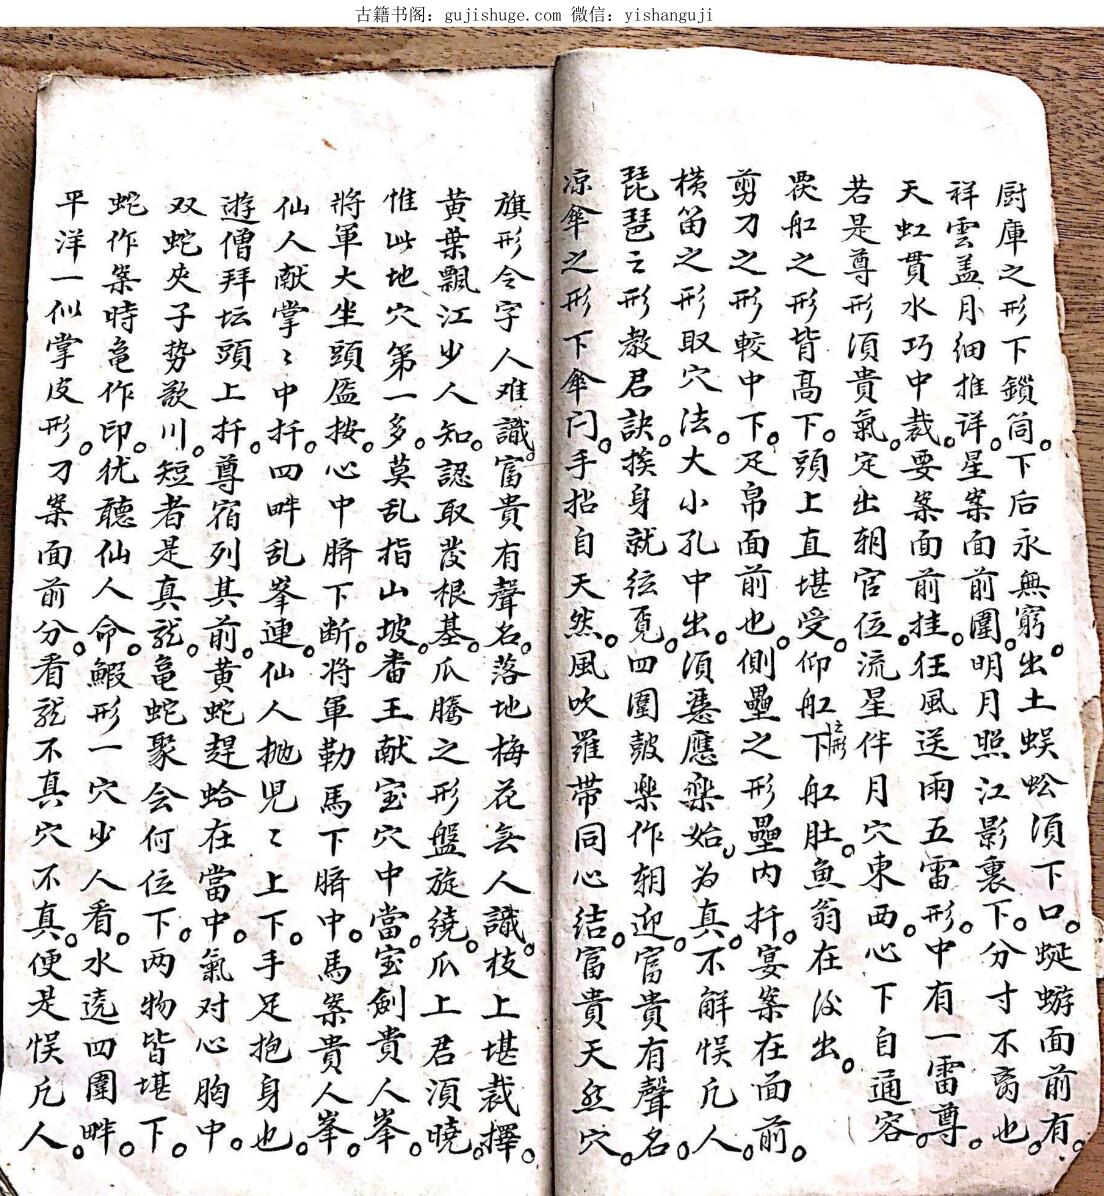 古籍书阁：gujishuge.com 微信：yishanguji
厨庫之形下鎖筒。下后永無窮。出土蜈蚣須下口。蜒蝣面前有。
祥雲盖月細推详。星案面前圍。明月照江影裏下。分寸不离也。
天虹貫水巧中裁。要案面前挂。狂風送雨五雷形。中有一雷尊。
若是尊形須貴氣。定出朝官位。流星伴月穴東西。心下自通容。
舡之形皆高下。頭上直堪受。仰舡下舡肚。魚翁在後出。
剪刀之形較中下。足帛面前也。側壘之形壘内扦。宴案在面前。
横笛之形取穴法。大小孔中出。須憑應樂始為真。不解悮凢人。
琵琶之形教君訣。挨身就弦覓。四圍皷樂作朝迎。富貴有聲名。
凉傘之形下傘闩。手拈自天然。風吹羅带同心結。富貴天然穴。
旗形令字人难識。富貴有聲名。落地梅花無人識。枝上堪裁擇。
黄葉飄江少人知。認取發根基。瓜騰之形盤旋繞。瓜上君須曉。
惟此地穴第一多。莫乱指山坡。畨王献宝穴中當。宝劍貴人峯。
將軍大坐頭盔按。心中臍下断。將軍勒馬下臍中。馬案貴人峯。
仙人献掌〻中扦。四畔乱峯連。仙人抛児〻上下。手足抱身也。
遊僧拜坛頭上扦。尊宿列其前。黄蛇趕蛤在當中。氣对心胸中。
双蛇夾子勢歌川。短者是真龍。亀蛇聚会何位下。两物皆堪下。
蛇作案時亀作印。犹聽仙人命。鰕形一穴少人看。水遶四圍畔。
平洋一似掌皮形。刀案面前分。看龍不真穴不真。便是悮凢人。